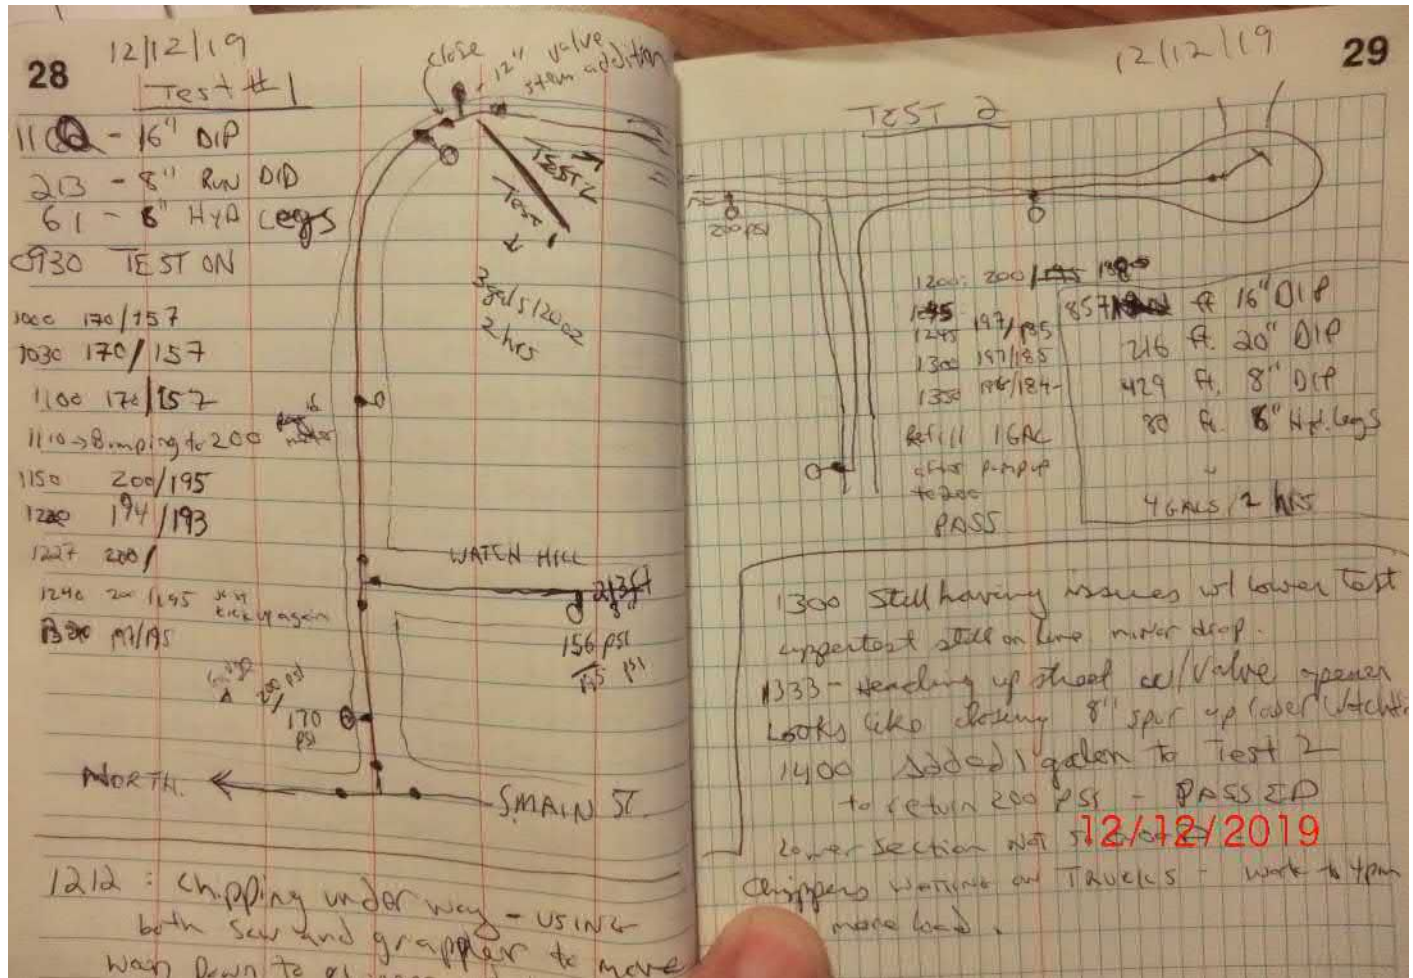 28
12/12/19
Test #1
110 - 16" DIP
213 - 8" RUN DID
61 - 6" HYD Legs
0930 TEST ON
1000 170/157
1030 170/157
1100 170/157
1110 → Bumping to 200
1150 200/195
1220 194/193
1227 200/
1240 200/195
again
197/195
close
12" valve
stem addition
TEST 2
Test 1
3gals/200z
2 hrs
WATCH HILL
213ft
8"
156 psi
195 psi
200 psi
170
psi
NORTH
S.MAIN ST.
1212 : Chipping under way - USING
both saw and grappler to move
down to
12/12/19
29
TEST 2
200 psi
1200: 200/
1245 197/185
1300 197/185
1330 196/184
Refill 1 GAL
after pumpup
to 200
PASS
857 ft 16" DIP
216 ft. 20" DIP
429 ft. 8" DIP
80 ft. 6" Hyd. Legs
4 GALS / 2 hrs
1300 Still having issues w/ Lower Test
uppertest still on line minor drop.
1333 - Heading up street w/ Valve opener
Looks like closing 8" spur up
1400 Added 1 galon to Test 2
to return 200 PSI - PASSED
Lower Section Not
12/12/2019
Chippers waiting on TRUCKS - work to 4pm
more load.